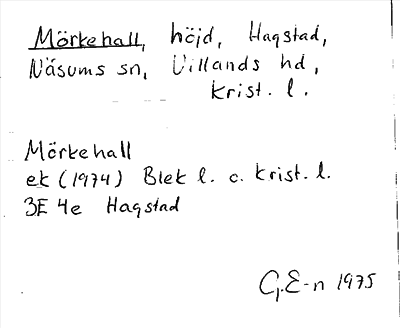 Mörkehall, höjd, Hagstad,
Näsums sn, Villands hd,
Krist. l.
Mörkehall
ek (1974) Blek l. o. Krist. l.
3E 4e Hagstad
G.E-n 1975